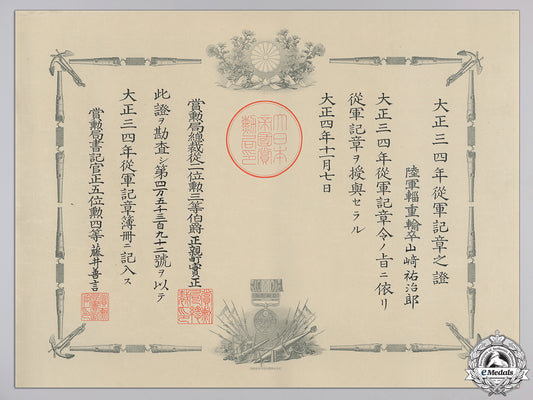 大正三四年從軍記章之證
陸軍輜重輸卒山﨑祐治郎
大正三四年從軍記章令ノ旨ニ依リ
從軍記章ヲ授與セラル
大正四年十一月七日
大日本
帝國賞
勲局印
賞勲局總裁從二位勲三等伯爵正親町實正
此證ヲ勘査シ第四万五千三百九十二號ヲ以テ
大正三四年從軍記章簿冊ニ記入ス
賞勲局書記官正五位勲四等藤井善言
eMedals